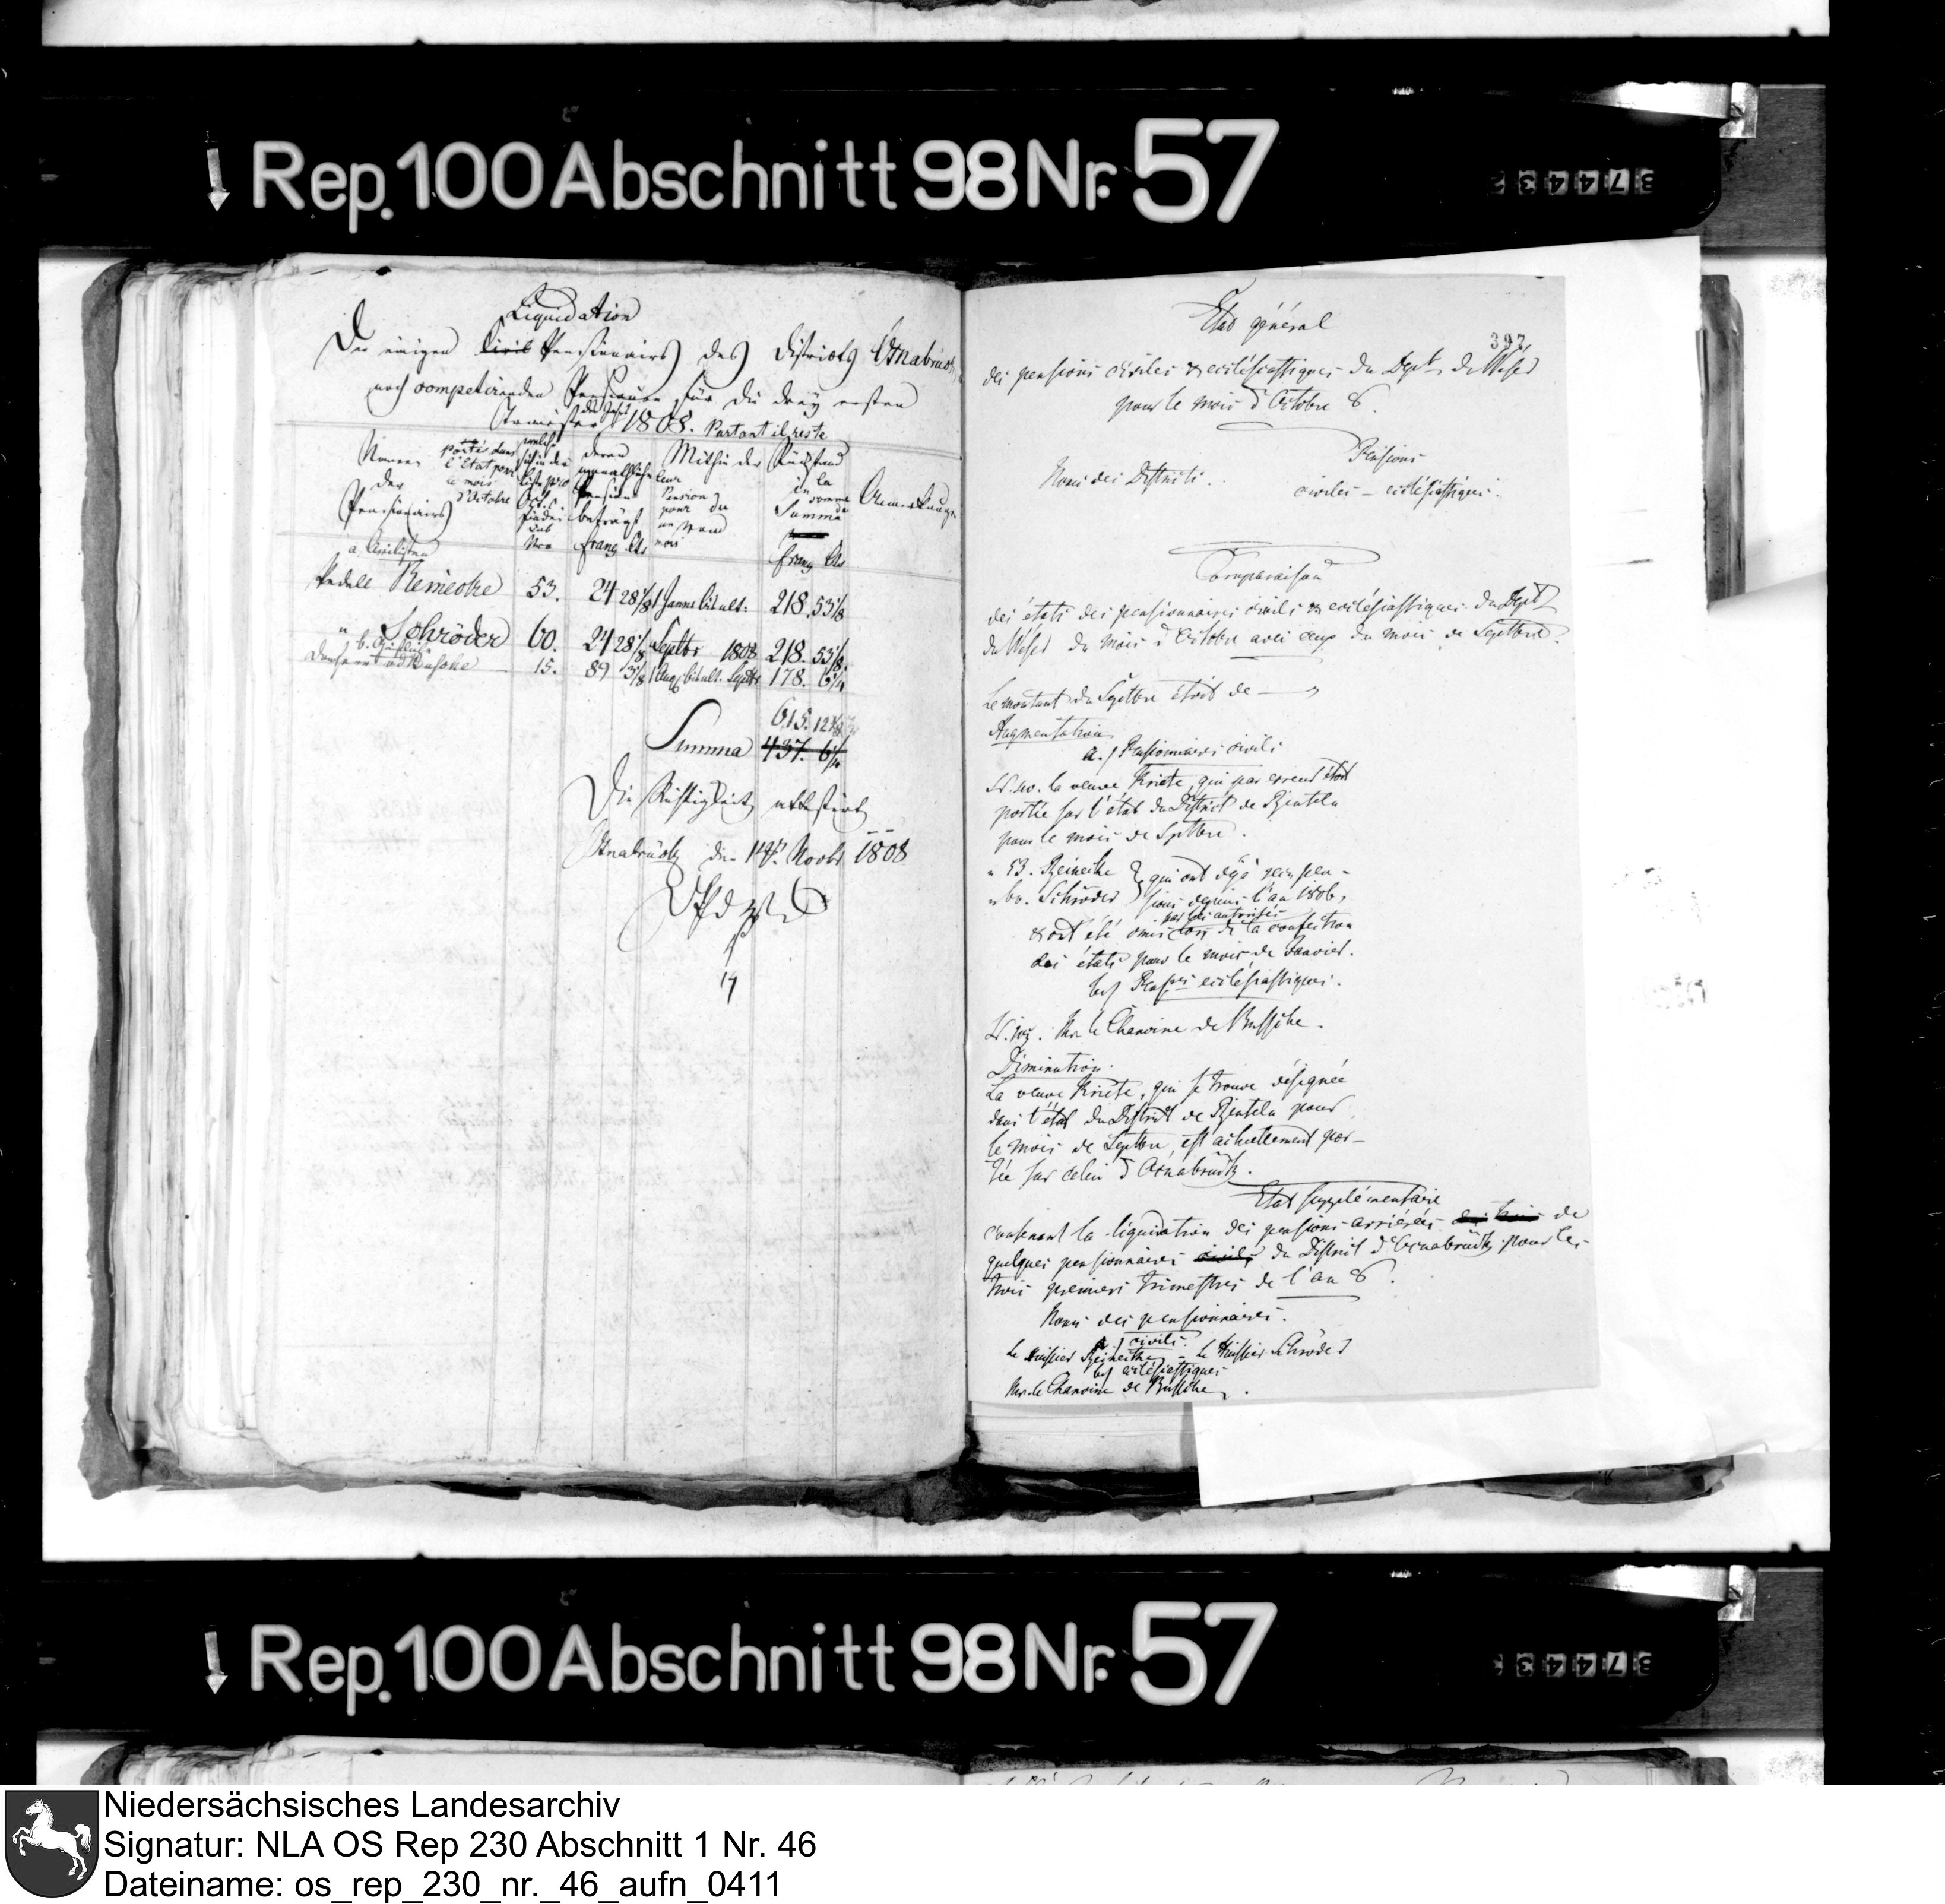 Rep. 100 Abschnitt 98 Nr. 57
374432
Liquidation
Der einigen Civil Pensionairs des Districts Osnabrück
noch competirenden Pensionen für die drey ersten
Trimester des Jahrs 1808. Partant il reste
Namen der Pensionairs
portés dans l'Etat pour le mois d'Octobre
welche sich in der Liste pro Oct. c. findet sub Nro
deren monatliche Pension beträgt
franz Cts
Mithin der Rückstand
leur Pension pour du mois
in Summa
la somme de
franz Cts
Anmerkungen
a Civilisten
Pedell Reinecke 53. 24 28 1/8 1 Januar bis ult. 218. 53 1/8
" Schröder 60. 24 28 1/8 Septbr 1808 218. 53 1/8
b. Geistliche
Domherr v. Bussche 15. 89 3/8 1 Aug. bis ult. Septbr 178. 6 1/4
615. 12
Summa 437. 6 1/4
Die Richtigkeit attestirt
Osnabrück den 14t Novbr 1808
Etat général
397
des pensions civiles & ecclésiastiques du Dept. du Wéser
pour le mois d'Octobre 8.
Pensions
Noms des Districts.
civiles – ecclésiastiques.
Comparaison
des états des pensionnaires civils & ecclésiastiques du Dept.
du Wéser du mois d'Octobre avec ceux du mois de Septbre.
Le montant du Septbre étoit de —
Augmentation
a.) Pensionnaires civils
la veuve Kriete, qui par erreur étoit
portée sur l'état du District de Rinteln
pour le mois de Septbre.
" 53. Reinecke } qui ont déjà reçu pen-
" 60. Schröder } sions depuis l'an 1806,
par les autorités
& ont été omis lors de la confection
des états pour le mois de Janvier.
b) Pens. ecclésiastiques.
Mr. le Chanoine de Bussche.
Diminution.
La veuve Kriete, qui se trouve désignée
dans l'état du District de Rinteln pour
le mois de Septbre, est actuellement por-
tée sur celui d'Osnabrück.
Etat supplémentaire
contenant la liquidation des pensions arriérées de
quelques pensionnaires civils du District d'Osnabrück pour les
trois premiers trimestres de l'an 8.
Noms des pensionnaires.
a.) civils.
Le Huissier Reinecke – le Huissier Schröder
b) ecclésiastiques
Mr. le Chanoine de Bussche.
Rep. 100 Abschnitt 98 Nr. 57
37443
Niedersächsisches Landesarchiv
Signatur: NLA OS Rep 230 Abschnitt 1 Nr. 46
Dateiname: os_rep_230_nr._46_aufn_0411